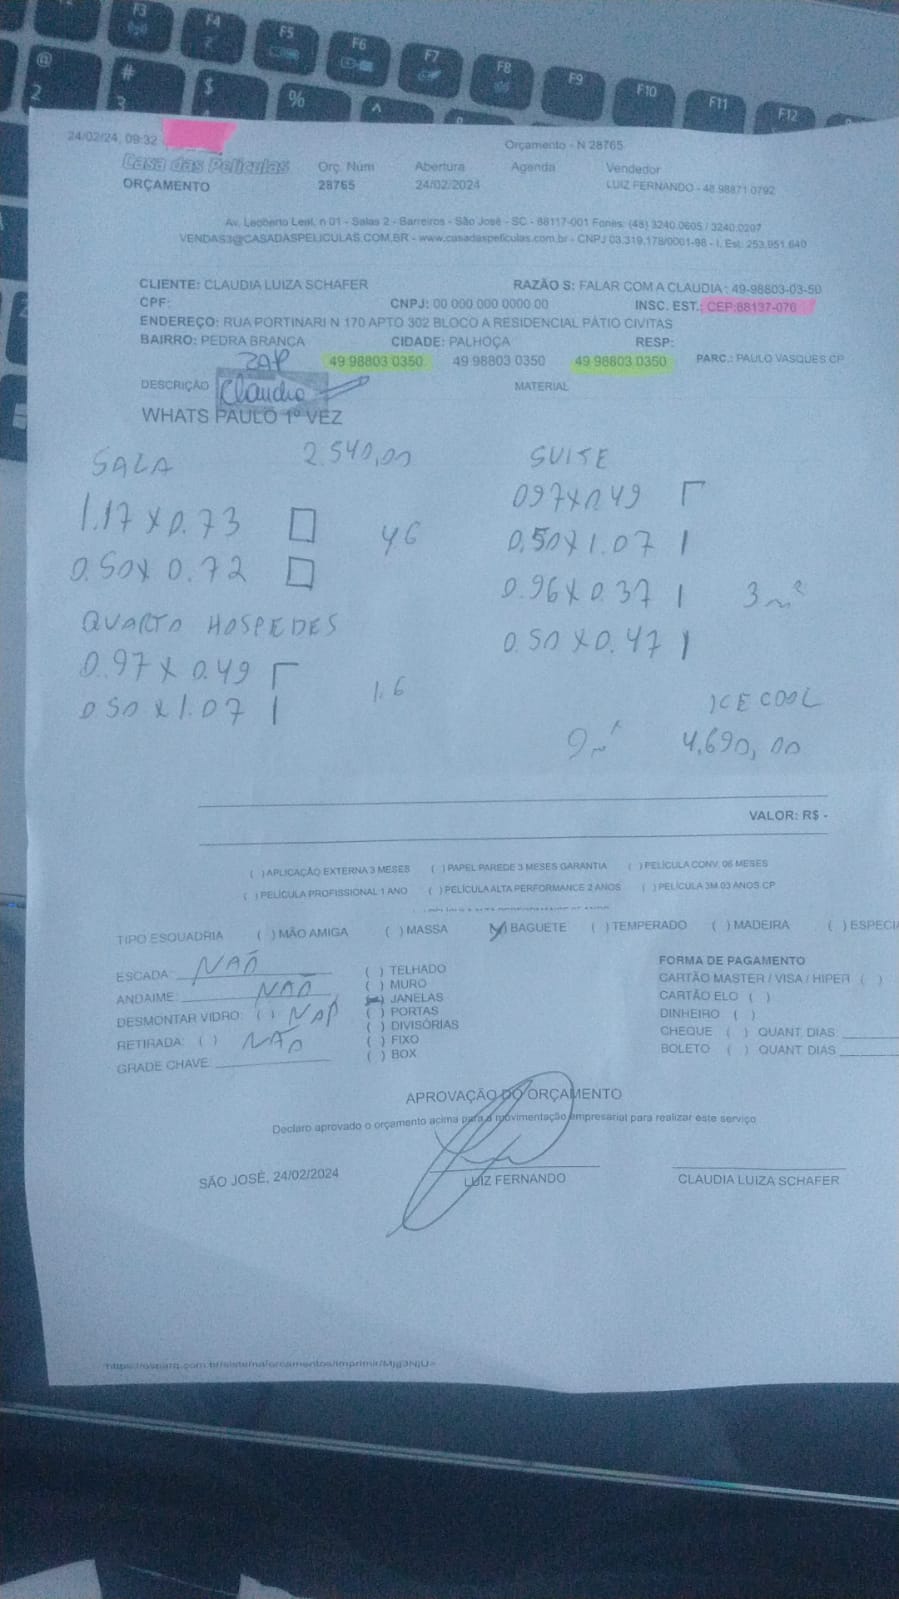 F3 F4 F5 F6 F7 F8 F9 F10 F11 F12
@ # $ % ^
2 3
24/02/24, 09:32
Orçamento - N 28765
Casa das Películas Orç. Núm Abertura Agenda Vendedor
ORÇAMENTO 28765 24/02/2024 LUIZ FERNANDO - 48.98871.0792
Av. Leoberto Leal, n 01 - Salas 2 - Barreiros - São José - SC - 88117-001 Fones: (48) 3240.0605 / 3240.0207
VENDAS3@CASADASPELICULAS.COM.BR - www.casadaspeliculas.com.br - CNPJ 03.319.178/0001-98 - I. Est: 253.951.640
CLIENTE: CLAUDIA LUIZA SCHAFER RAZÃO S: FALAR COM A CLAUDIA : 49-98803-03-50
CPF: CNPJ: 00 000 000 0000 00 INSC. EST.: CEP:88137-076
ENDEREÇO: RUA PORTINARI N 170 APTO 302 BLOCO A RESIDENCIAL PÁTIO CIVITAS
BAIRRO: PEDRA BRANCA CIDADE: PALHOÇA RESP:
ZAP 49 98803 0350 49 98803 0350 49 98803 0350 PARC.: PAULO VASQUES CP
DESCRIÇÃO Claudia MATERIAL
WHATS PAULO 1º VEZ
SALA 2.540,00
1.17 x 0.73 4.6
0.50 x 0.72
QUARTO HOSPEDES
0.97 x 0.49
0.50 x 1.07 1.6
SUITE
0.97 x 0.49
0.50 x 1.07
0.96 x 0.37 3m²
0.50 x 0.47
ICE COOL
9m² 4,690,00
VALOR: R$ -
( ) APLICAÇÃO EXTERNA 3 MESES ( ) PAPEL PAREDE 3 MESES GARANTIA ( ) PELÍCULA CONV. 06 MESES
( ) PELÍCULA PROFISSIONAL 1 ANO ( ) PELÍCULA ALTA PERFORMANCE 2 ANOS ( ) PELÍCULA 3M 03 ANOS CP
TIPO ESQUADRIA ( ) MÃO AMIGA ( ) MASSA (X) BAGUETE ( ) TEMPERADO ( ) MADEIRA ( ) ESPECI
ESCADA: NÃO
ANDAIME: NÃO
DESMONTAR VIDRO: ( ) NÃO
RETIRADA: ( ) NÃO
GRADE CHAVE:
( ) TELHADO
( ) MURO
(X) JANELAS
( ) PORTAS
( ) DIVISÓRIAS
( ) FIXO
( ) BOX
FORMA DE PAGAMENTO
CARTÃO MASTER / VISA / HIPER ( )
CARTÃO ELO ( )
DINHEIRO ( )
CHEQUE ( ) QUANT. DIAS:
BOLETO ( ) QUANT DIAS
APROVAÇÃO DO ORÇAMENTO
Declaro aprovado o orçamento acima para a movimentação empresarial para realizar este serviço
SÃO JOSÉ, 24/02/2024 LUIZ FERNANDO CLAUDIA LUIZA SCHAFER